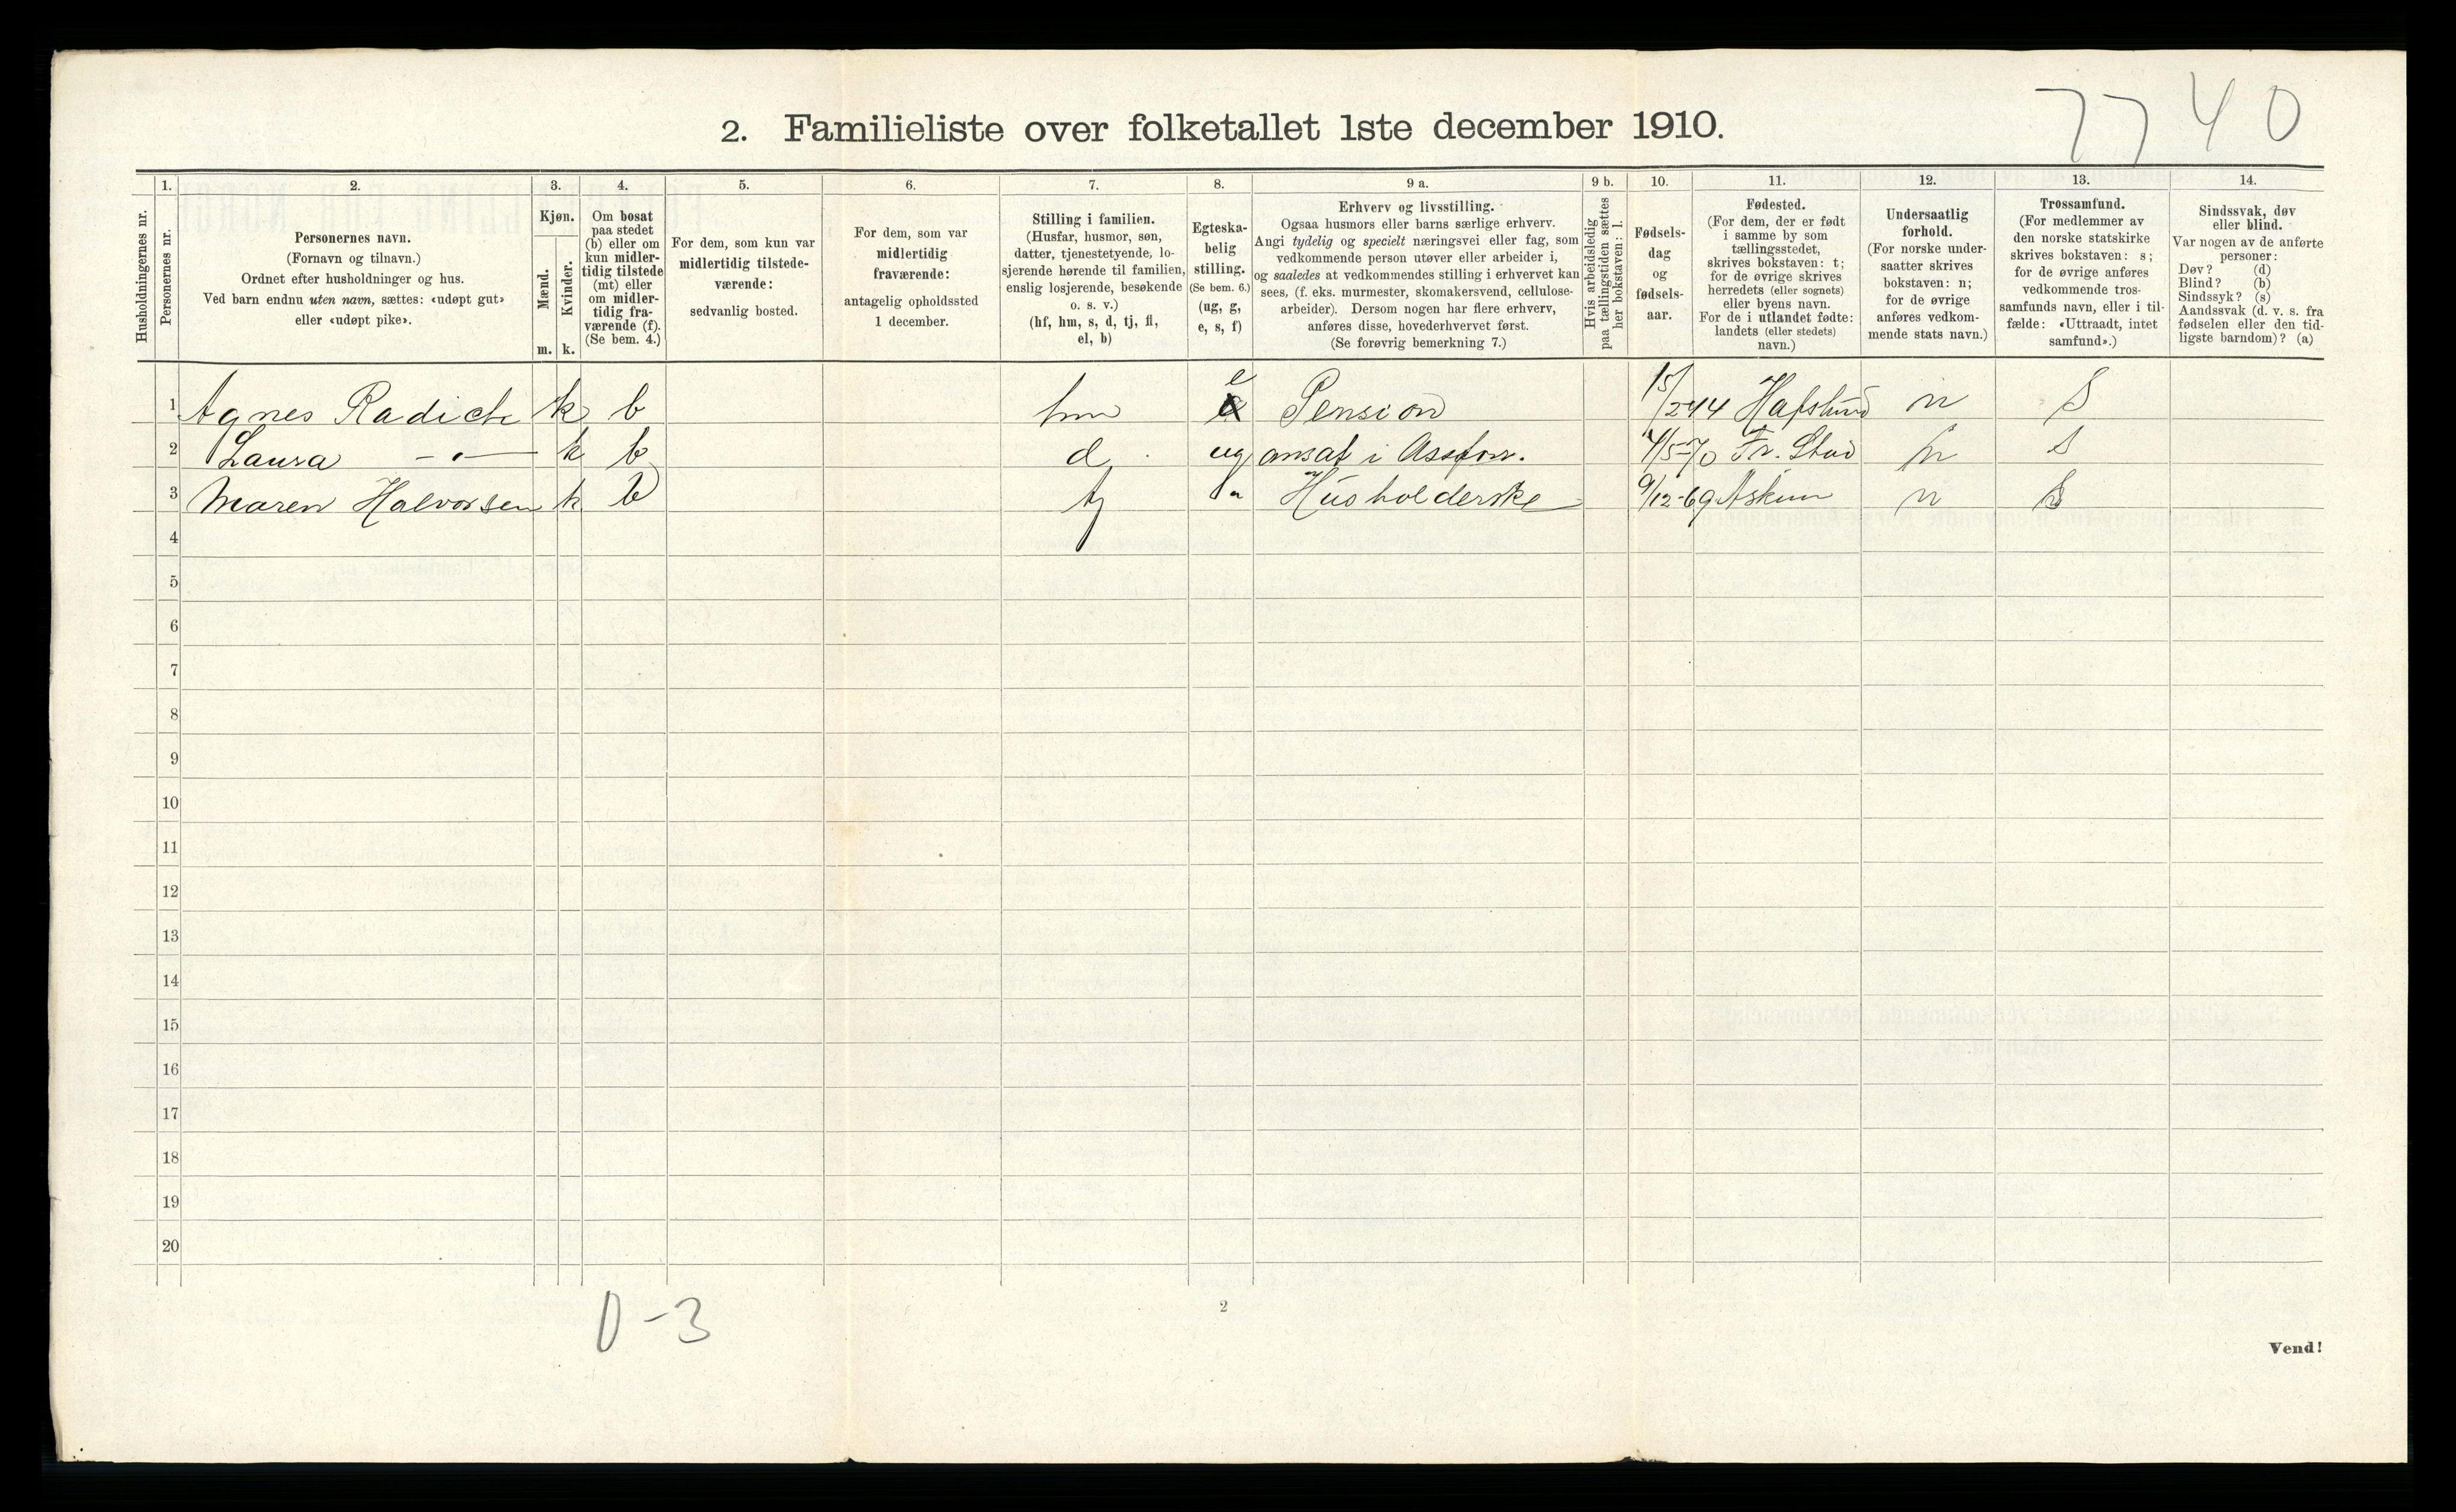 7740
2. Familieliste over folketallet 1ste december 1910.
1. 2. 3. 4. 5. 6. 7. 8. 9 a. 9 b. 10. 11. 12. 13. 14.
Husholdningernes nr.
Personernes nr.
Personernes navn.
(Fornavn og tilnavn.)
Ordnet efter husholdninger og hus.
Ved barn endnu uten navn, sættes: «udøpt gut»
eller «udøpt pike».
Kjøn.
Mænd.
Kvinder.
m. k.
Om bosat
paa stedet
(b) eller om
kun midler-
tidig tilstede
(mt) eller
om midler-
tidig fra-
værende (f).
(Se bem. 4.)
For dem, som kun var
midlertidig tilstede-
værende:
sedvanlig bosted.
For dem, som var
midlertidig
fraværende:
antagelig opholdssted
1 december.
Stilling i familien.
(Husfar, husmor, søn,
datter, tjenestetyende, lo-
sjerende hørende til familien,
enslig losjerende, besøkende
o. s. v.)
(hf, hm, s, d, tj, fl,
el, b)
Egteska-
belig
stilling.
(Se bem. 6.)
(ug, g,
e, s, f)
Erhverv og livsstilling.
Ogsaa husmors eller barns særlige erhverv.
Angi tydelig og specielt næringsvei eller fag, som
vedkommende person utøver eller arbeider i,
og saaledes at vedkommendes stilling i erhvervet kan
sees, (f. eks. murmester, skomakersvend, cellulose-
arbeider). Dersom nogen har flere erhverv,
anføres disse, hovederhvervet først.
(Se forøvrig bemerkning 7.)
Hvis arbeidsledig
paa tællingstiden sættes
her bokstaven: l.
Fødsels-
dag
og
fødsels-
aar.
Fødested.
(For dem, der er født
i samme by som
tællingsstedet,
skrives bokstaven: t;
for de øvrige skrives
herredets (eller sognets)
eller byens navn.
For de i utlandet fødte:
landets (eller stedets)
navn.)
Undersaatlig
forhold.
(For norske under-
saatter skrives
bokstaven: n;
for de øvrige
anføres vedkom-
mende stats navn.)
Trossamfund.
(For medlemmer av
den norske statskirke
skrives bokstaven: s;
for de øvrige anføres
vedkommende tros-
samfunds navn, eller i til-
fælde: «Uttraadt, intet
samfund».)
Sindssvak, døv
eller blind.
Var nogen av de anførte
personer:
Døv? (d)
Blind? (b)
Sindssyk? (s)
Aandssvak (d. v. s. fra
fødselen eller den tid-
ligste barndom)? (a)
1 Agnes Radich k b hm e Pension 15/2 44 Hafslund n S
2 Laura -"- k b d ug ansat i Assfor. 4/5-70 Fr. Stad n S
3 Maren Halvorsen k b tj " Husholderske 9/12-69 Askim n S
4
5
6
7
8
9
10
11
12
13
14
15
16
17
18
19
20
0-3
2
Vend!